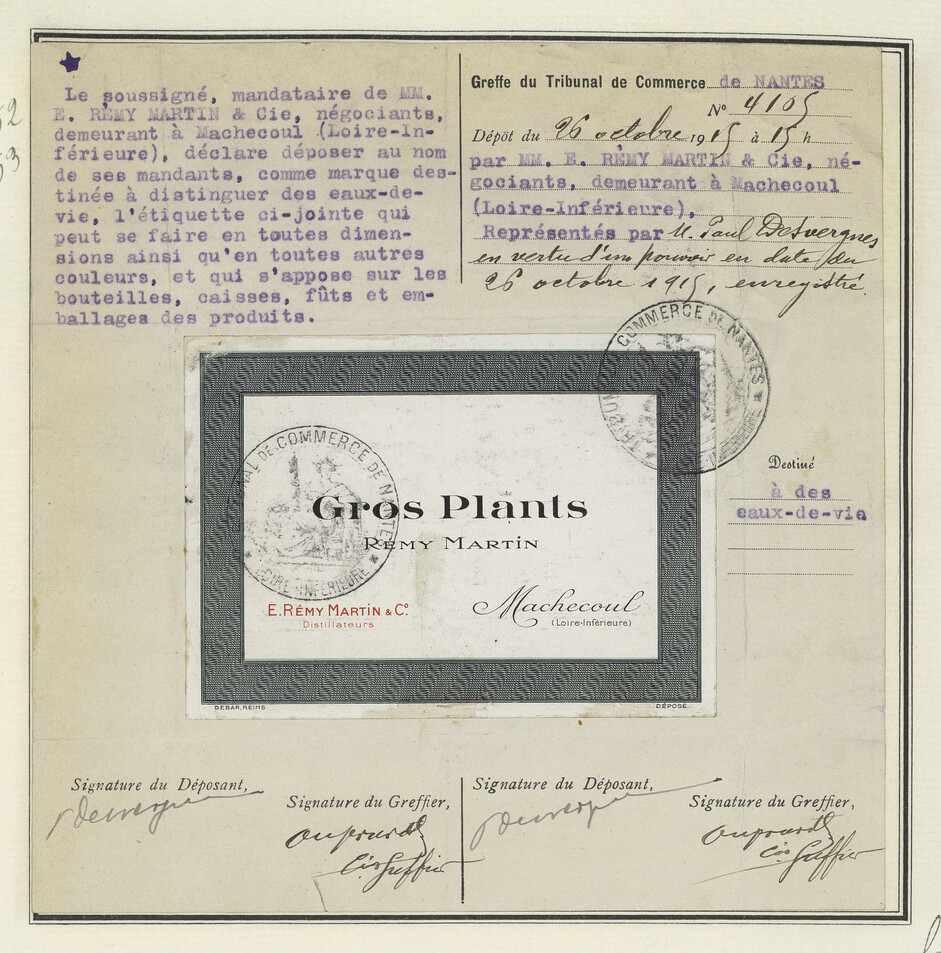 Le soussigné, mandataire de MM.
E. RÉMY MARTIN & Cie, négociants,
demeurant à Machecoul (Loire-In-
férieure), déclare déposer au nom
de ses mandants, comme marque des-
tinée à distinguer des eaux-de-
vie, l'étiquette ci-jointe qui
peut se faire en toutes dimen-
sions ainsi qu'en toutes autres
couleurs, et qui s'appose sur les
bouteilles, caisses, fûts et em-
ballages des produits.
Greffe du Tribunal de Commerce de NANTES
N° 4105
Dépôt du 26 octobre 1915 à 15 h
par MM. E. RÉMY MARTIN & Cie, né-
gociants, demeurant à Machecoul
(Loire-Inférieure),
Représentés par M. Paul Desvergnes
en vertu d'un pouvoir en date du
26 octobre 1915, enregistré.
TRIBUNAL DE COMMERCE DE NANTES
LOIRE-INFÉRIEURE
TRIBUNAL DE COMMERCE DE NANTES
LOIRE-INFÉRIEURE
Gros Plants
RÉMY MARTIN
E. RÉMY MARTIN & C°
Distillateurs
Machecoul
(Loire-Inférieure)
DEBAR, REIMS
DÉPOSÉ
Destiné
à des
eaux-de-vie
Signature du Déposant,
Signature du Greffier,
Cis Greffier
Signature du Déposant,
Signature du Greffier,
Cis Greffier